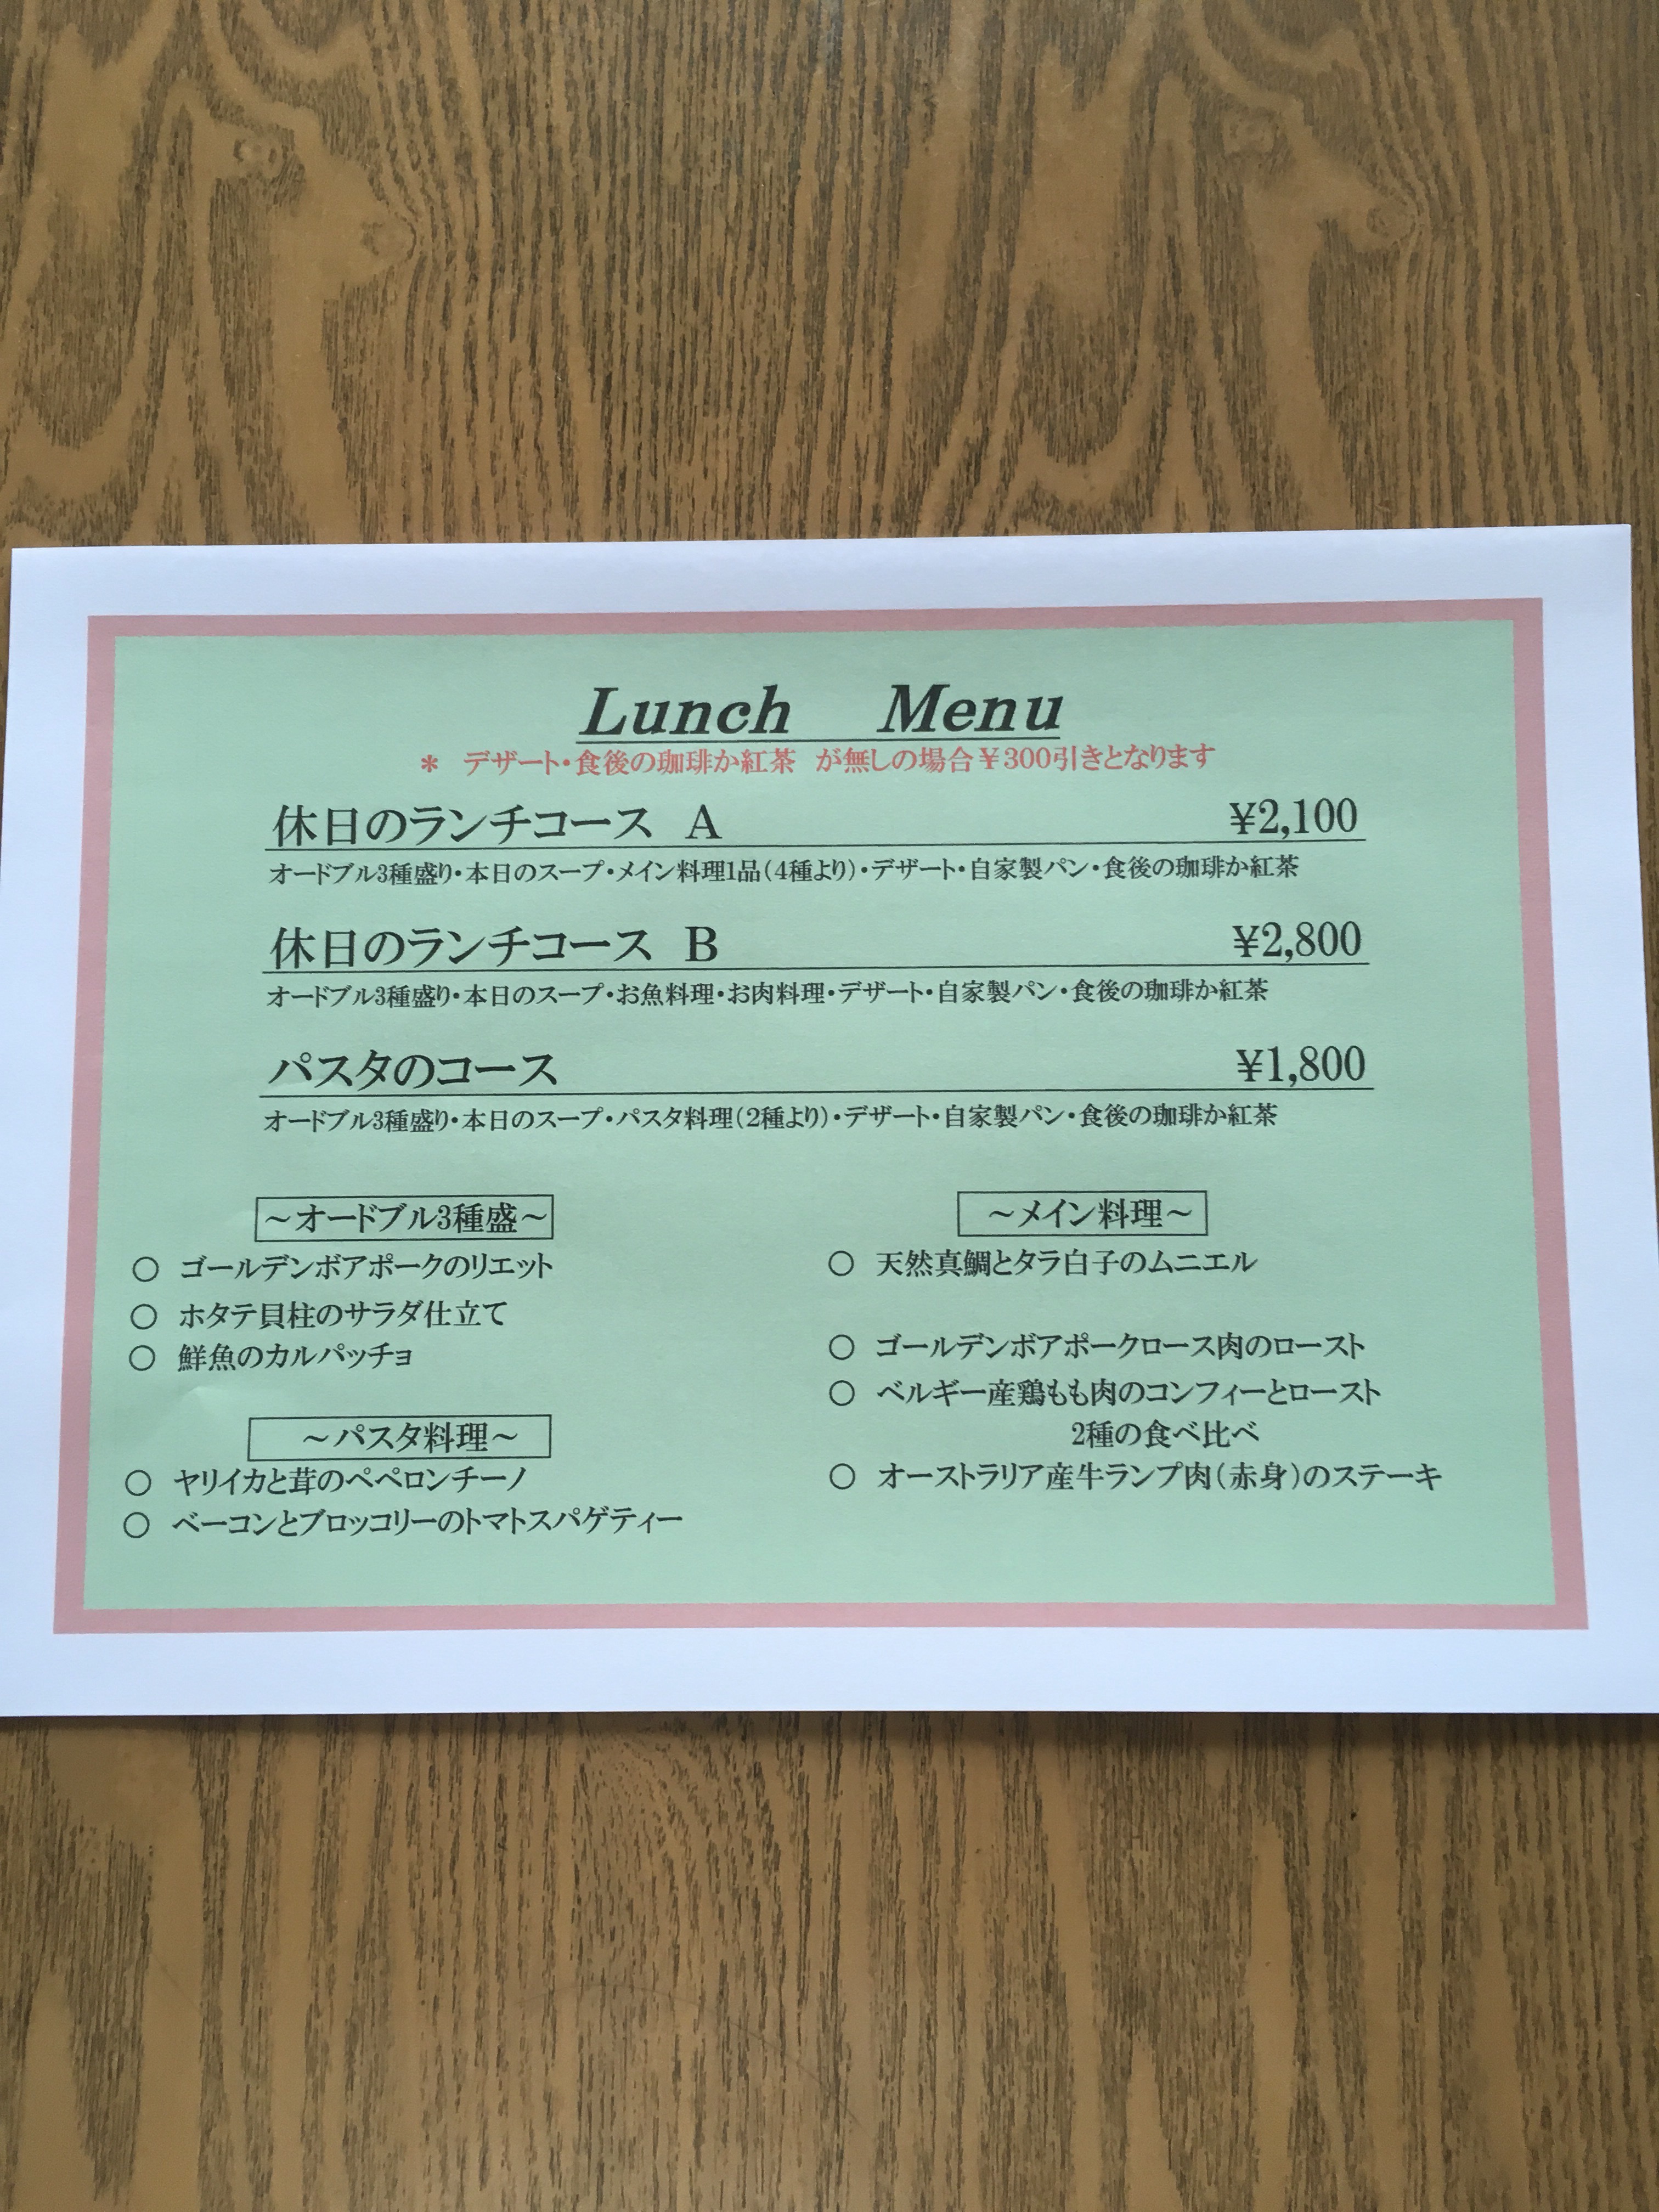 Lunch Menu
* デザート・食後の珈琲か紅茶 が無しの場合￥300引きとなります
休日のランチコース A ¥2,100
オードブル3種盛り・本日のスープ・メイン料理1品(4種より)・デザート・自家製パン・食後の珈琲か紅茶
休日のランチコース B ¥2,800
オードブル3種盛り・本日のスープ・お魚料理・お肉料理・デザート・自家製パン・食後の珈琲か紅茶
パスタのコース ¥1,800
オードブル3種盛り・本日のスープ・パスタ料理(2種より)・デザート・自家製パン・食後の珈琲か紅茶
～オードブル3種盛～
○ ゴールデンボアポークのリエット
○ ホタテ貝柱のサラダ仕立て
○ 鮮魚のカルパッチョ
～パスタ料理～
○ ヤリイカと茸のペペロンチーノ
○ ベーコンとブロッコリーのトマトスパゲティー
～メイン料理～
○ 天然真鯛とタラ白子のムニエル
○ ゴールデンボアポークロース肉のロースト
○ ベルギー産鶏もも肉のコンフィーとロースト
2種の食べ比べ
○ オーストラリア産牛ランプ肉(赤身)のステーキ